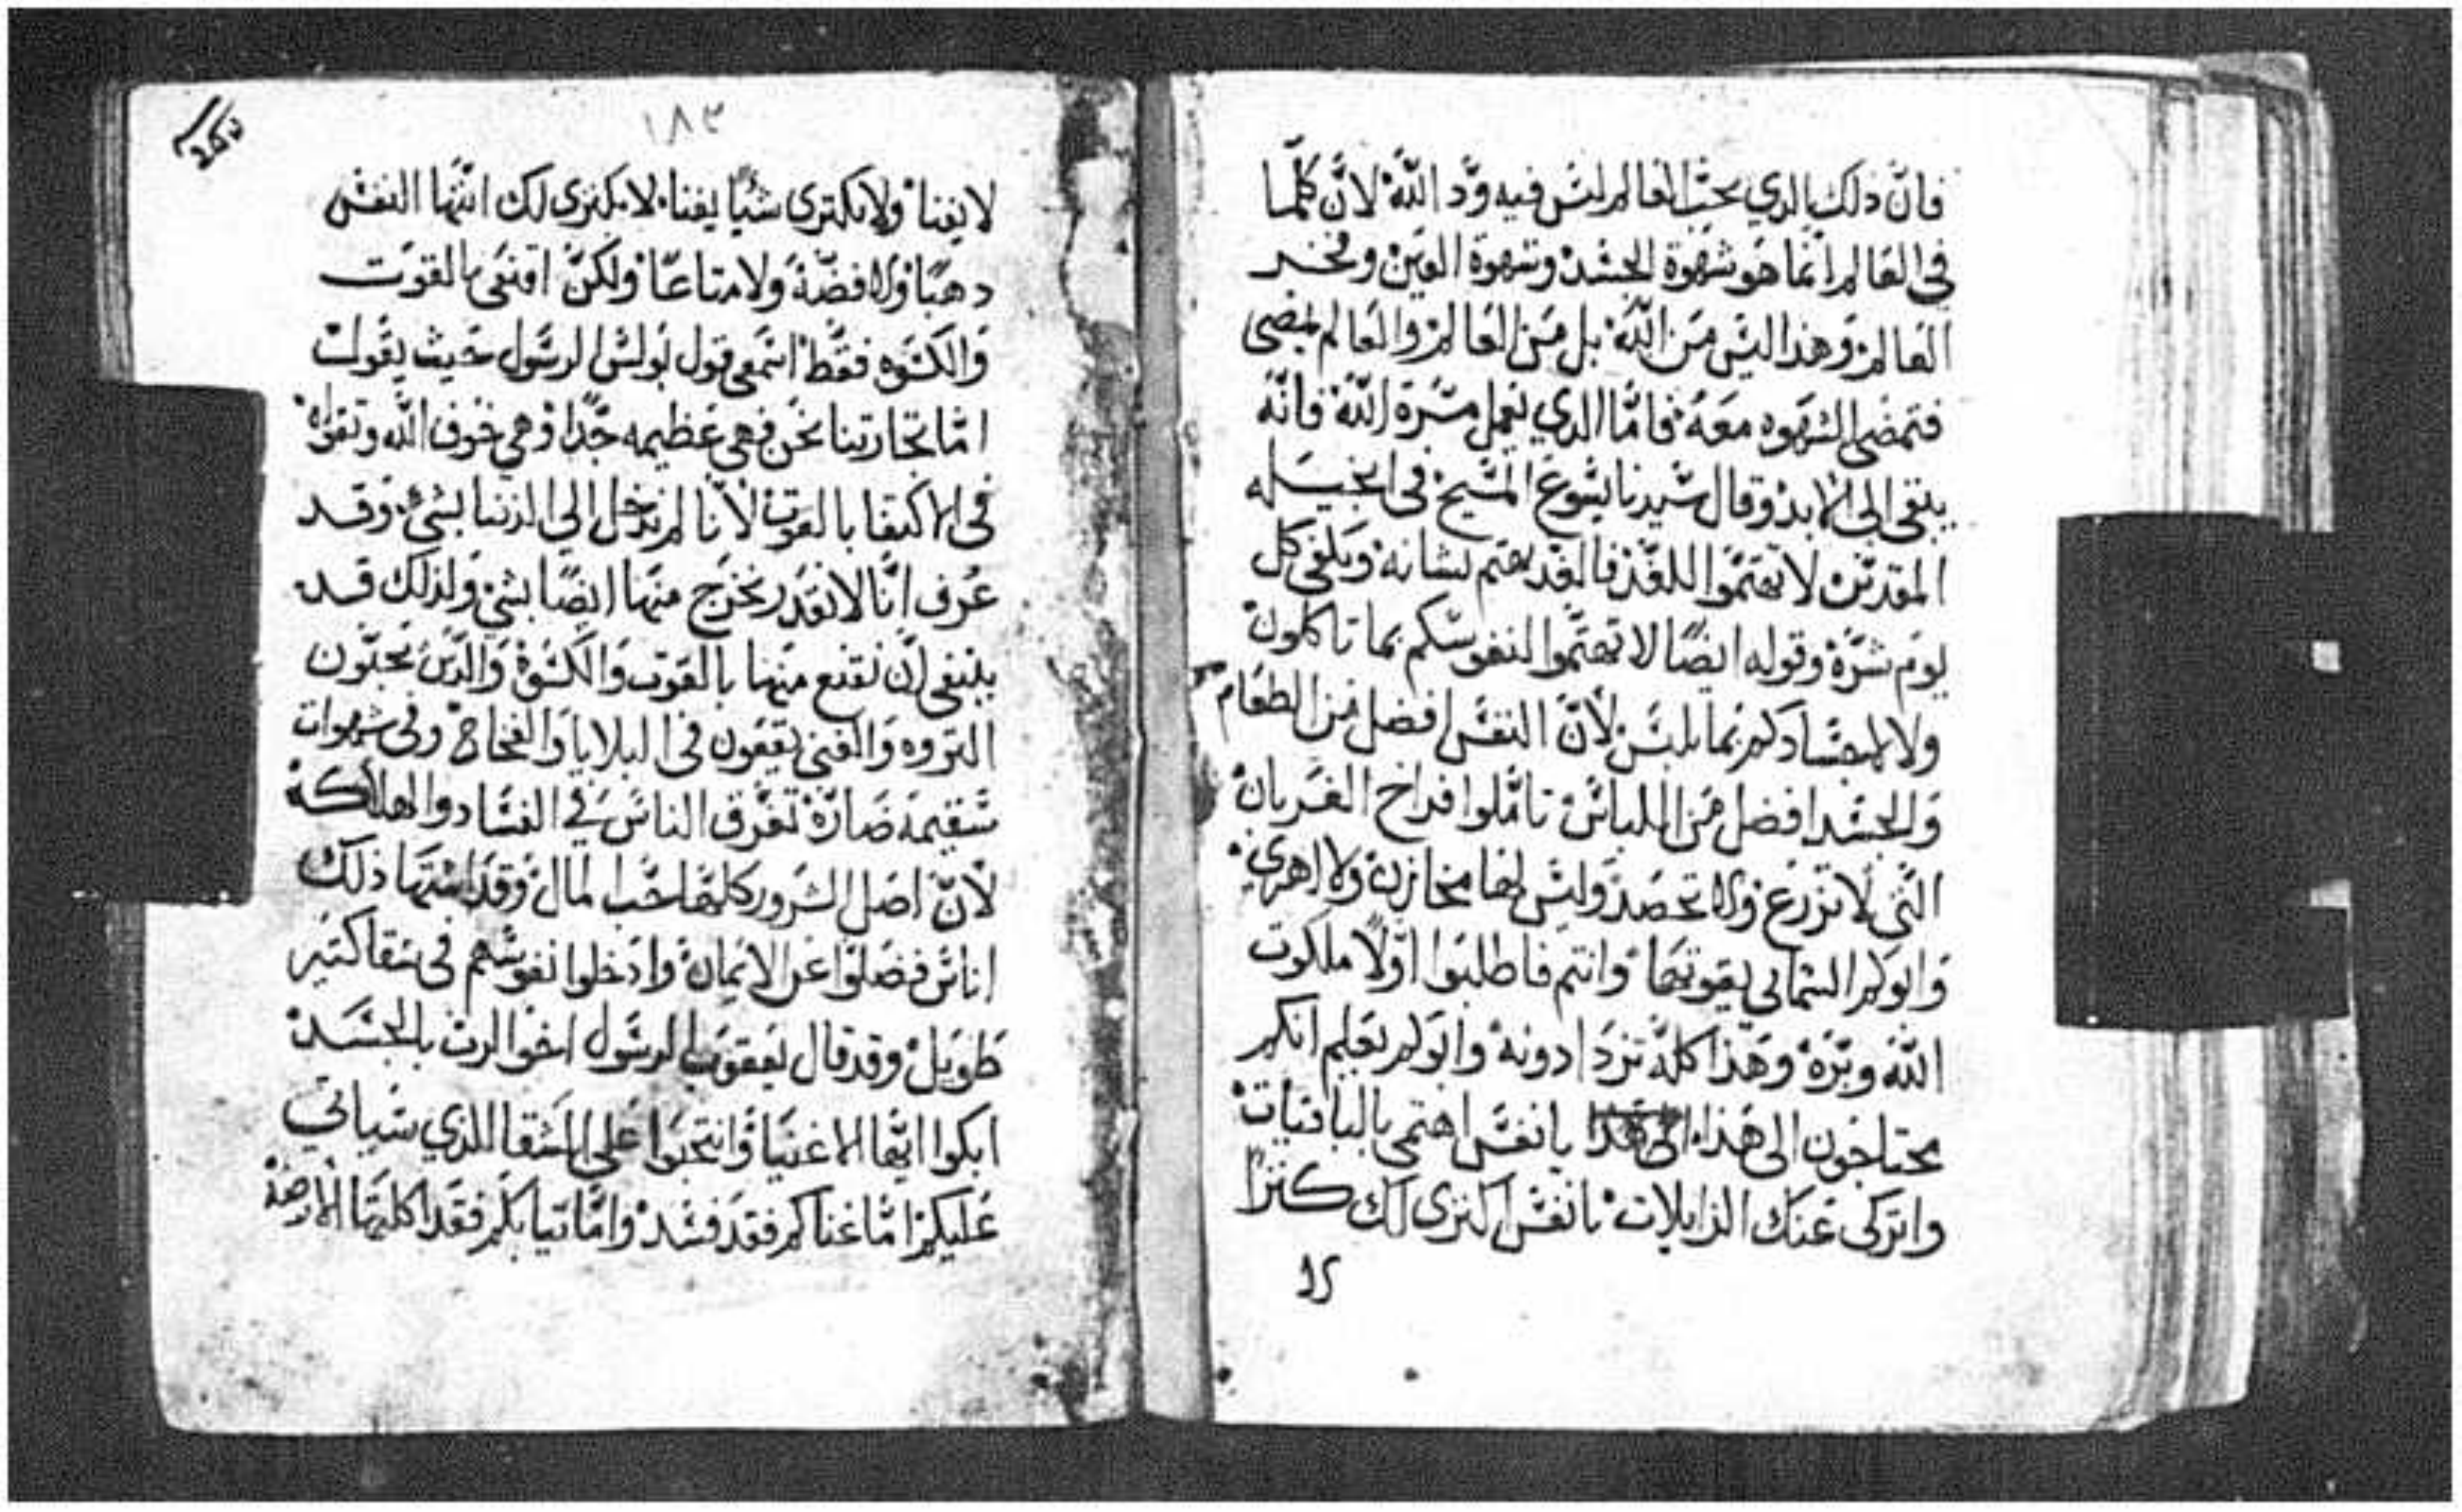 فانّ ذلك الدي يحبّ العالم ليس فيه ودّ اللّه لانّ كلّما
في العالم انما هو شهوة الجسد وشهوة العين وفخر
العالم وهذا ليس من اللّه بل من العالم والعالم يمضي
فتمضي الشهوه معه فامّا الدي يعمل مسرة اللّه فانّه
يبقى الى الابد وقال سيدنا يسوع المسيح في انجيله
المقدس لا تهتموا للغد فالغد يهتم بشانه ويكفي كل
يوم شرّه وقوله ايضًا لا تهتموا لنفوسكم بما تاكلون
ولا لاجسادكم بما تلبس لانّ النفس افضل من الطعام
والجسد افضل من اللباس تامّلوا فراخ الغربان
التي لا تزرع ولا تحصد وليس لها مخازن ولا اهري
وابوكم السماىي يقوتها وانتم فاطلبوا اوّلًا ملكوت
اللّه وبرّه وهذا كلّه تزدادونه وابوكم يعلم انكم
تحتاجون الى هذا الى هذا يا نفس اهتمي بالباقيات
واتركي عنك الزايلات يا نفس اكنزي لك كنزًا
١٨٣
لا يفنا ولا تكتري شيًا يفنا لا تكنزي لك ايتها النفس
دهبًا ولا فضّة ولا متاعًا ولكن اقنعي بالقوت
والكسوه فقط اسمعي قول بولس الرسول حيث يقول
امّا تجارتنا نحن فهي عظيمه جدًا وهي خوف اللّه وتقواه
في الاكتفا بالقوت لانا لم ندخل الى الدنيا بشي وقد
عرف انّا لا نقدر نخرج منها ايضًا بشي ولذلك قد
ينبغي ان نقنع منها بالقوت والكسوة والذين يحبّون
التروه والغني يقعون في البلايا والفخاخ وفي شهوات
سقيمة ضارّة تغرق الناس في الفساد والهلاكة
لانّ اصل الشرور كلها حب المال وقد اشتها ذلك
اناس فضلّوا عن الايمان وادخلوا نفوسهم في شقا كتير
طويل وقد قال يعقوب الرسول اخوا الرب بالجسد
ابكوا ايها الاغنيا وانتحبوا على الشقا الذي سياتي
عليكم امّا غناكم فقد فسد وامّا تيابكم فقد اكلتها الارضة